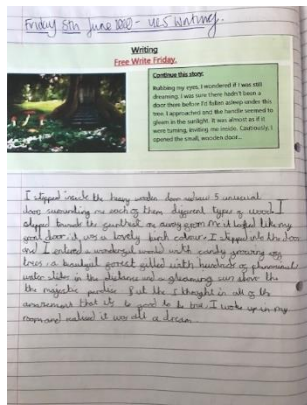 Friday 5th June 2020 - YES Writing.
Writing
Free Write Friday.
Continue this story:
Rubbing my eyes, I wondered if I was still
dreaming. I was sure there hadn't been a
door there before I'd fallen asleep under this
tree. I approached and the handle seemed to
gleam in the sunlight. It was almost as if it
were turning, inviting me inside. Cautiously, I
opened the small, wooden door...
I stepped inside the heavy wooden door 5 unusual
doors surrounding me each of them different types of wood. I
stepped towards the furthest one away from me it looked like my
door, it was a lovely birch colour. I stepped into the door
and I entered a wonderful world with candy growing on
trees, a beautiful forest filled with hundreds of phenomenal
water slides in the distance and a gleaming sun above the
the majestic paradise. But the I thought in all of the
amazement that it's to good to be true, I woke up in my
room and realised it was all a dream.